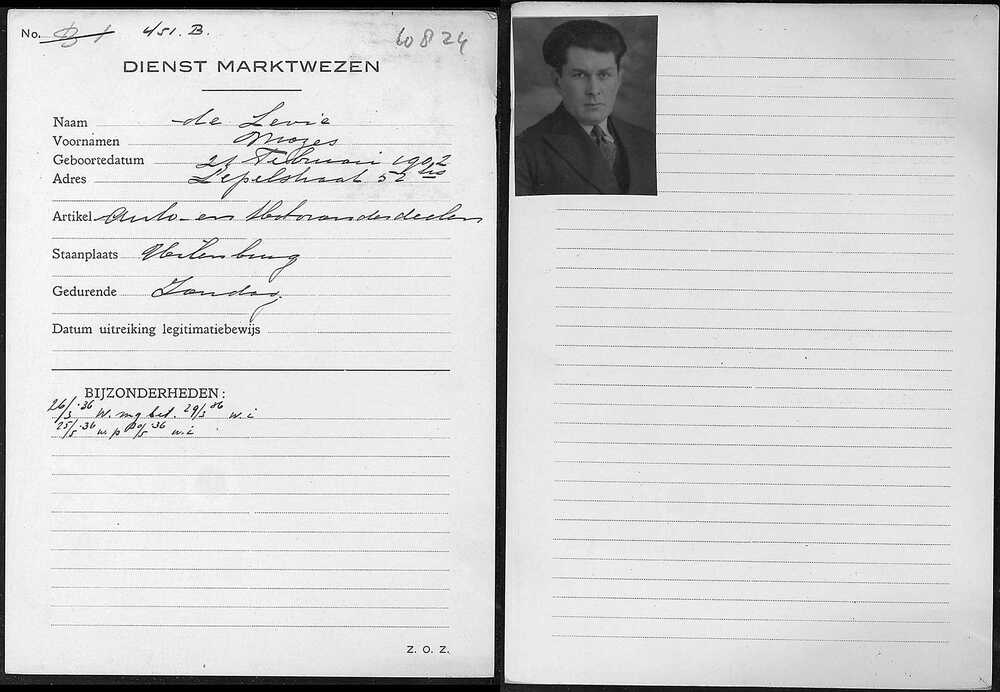 No. B 1 4/51. B. 60824
DIENST MARKTWEZEN
Naam de Levie
Voornamen Mozes
Geboortedatum 21 Februari 1902
Adres Lepelstraat 52 bis
Artikel Auto- en Motoronderdeelen
Staanplaats Uilenburg
Gedurende Zondag.
Datum uitreiking legitimatiebewijs
BIJZONDERHEDEN:
26/3 '36 w. m g bet. 29/3 36 w. i
25/5 '36 w. p 20/5 '36 w. i
Z. O. Z.